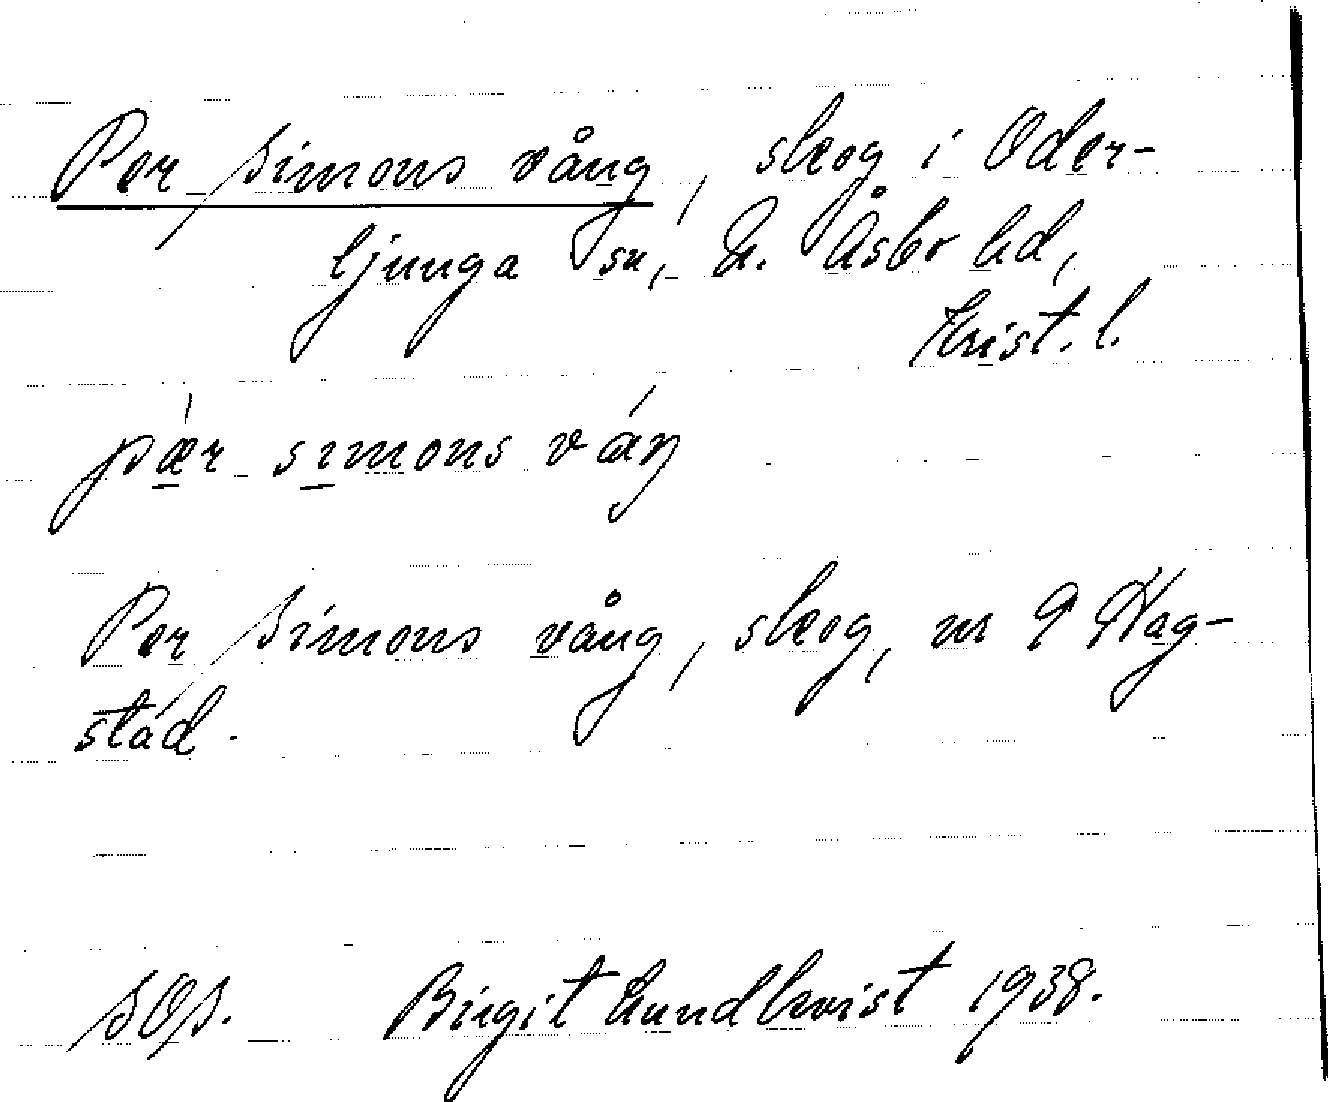 Per Simons vång, skog i Oder-
ljunga sn, N. Åsbo hd,
Krist. l.
pær simons váŋ
Per Simons vång, skog, nr 9 Hag-
stad.
SOS. Birgit Lundkvist 1938.